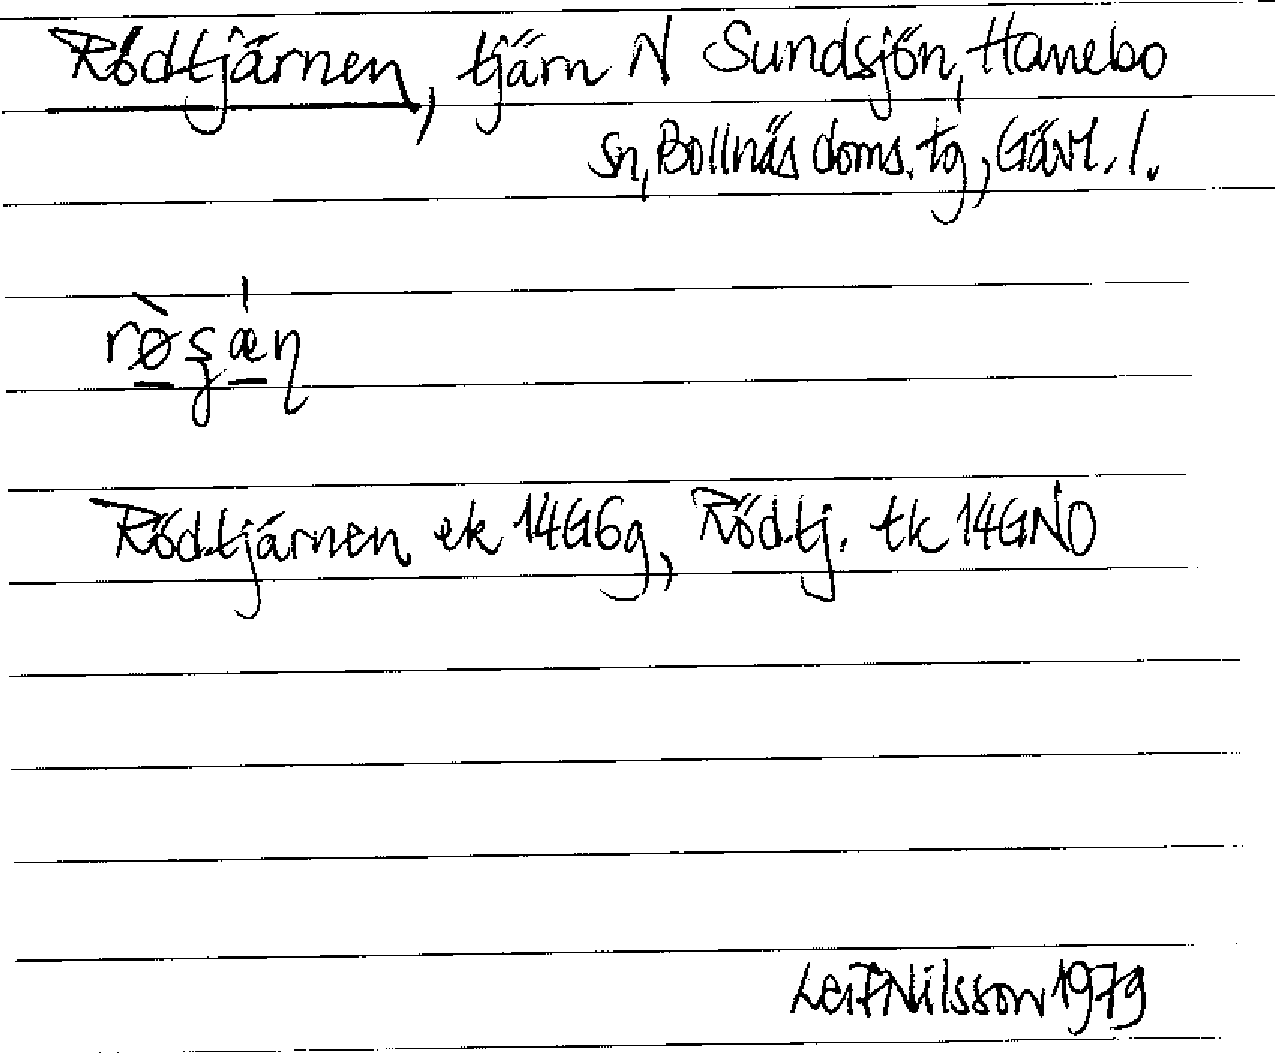 Rödtjärnen, tjärn N Sundsjön, Hanebo
sn, Bollnäs doms. tg, Gävl. l.
rø̀ʂǽɳ
Rödtjärnen ek 14G6g, Rödtj. tk 14GNO
Leif Nilsson 1979